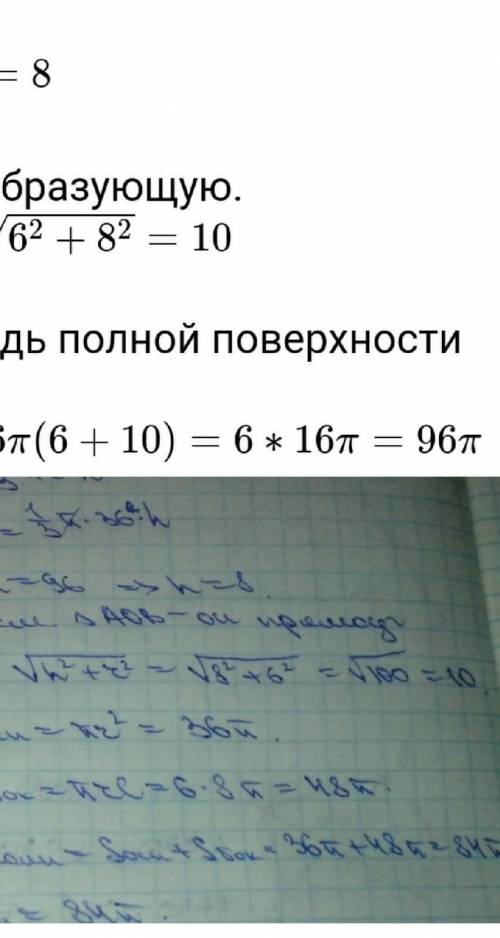 = 8
бразующую.
√6² + 8² = 10
дь полной поверхности
6π(6 + 10) = 6 ∗ 16π = 96π
= 1/3 π · 36 · h
=96 => h=8.
△AOB – прямоуг
√h²+r² = √8²+6² = √100 = 10
= πr² = 36π.
бок = πrl = 6·8π = 48π.
полн = Sосн + Sбок = 36π+48π = 84π
= 84π.